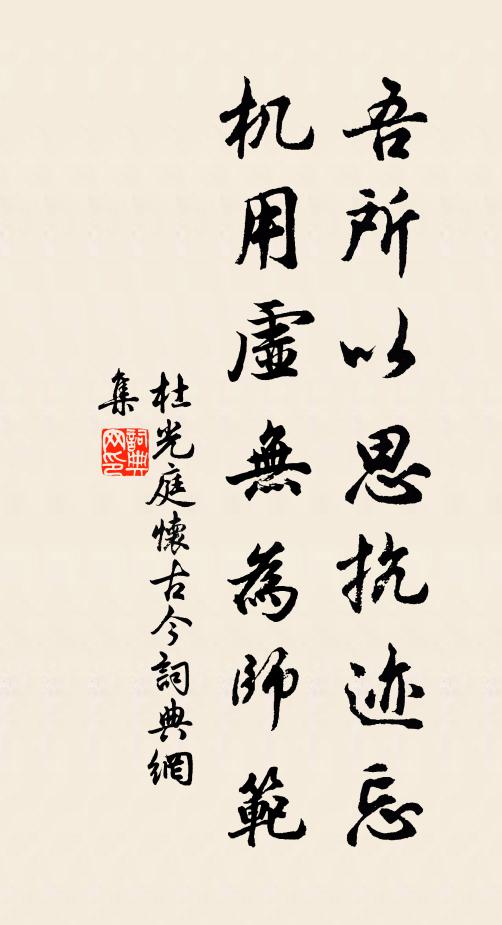 吾所以思抗迹忘
机用虛無為師範
杜光庭懷古今詞典網
集
詞典
网印